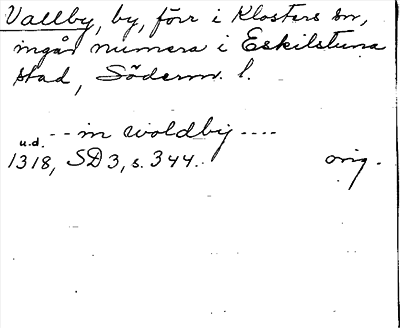 Vallby, by, förr i Klosters sn,
ingår numera i Eskilstuna
stad, Söderm. l.
-- in woldby ----
u.d.
1318, SD 3, s. 344.. orig.